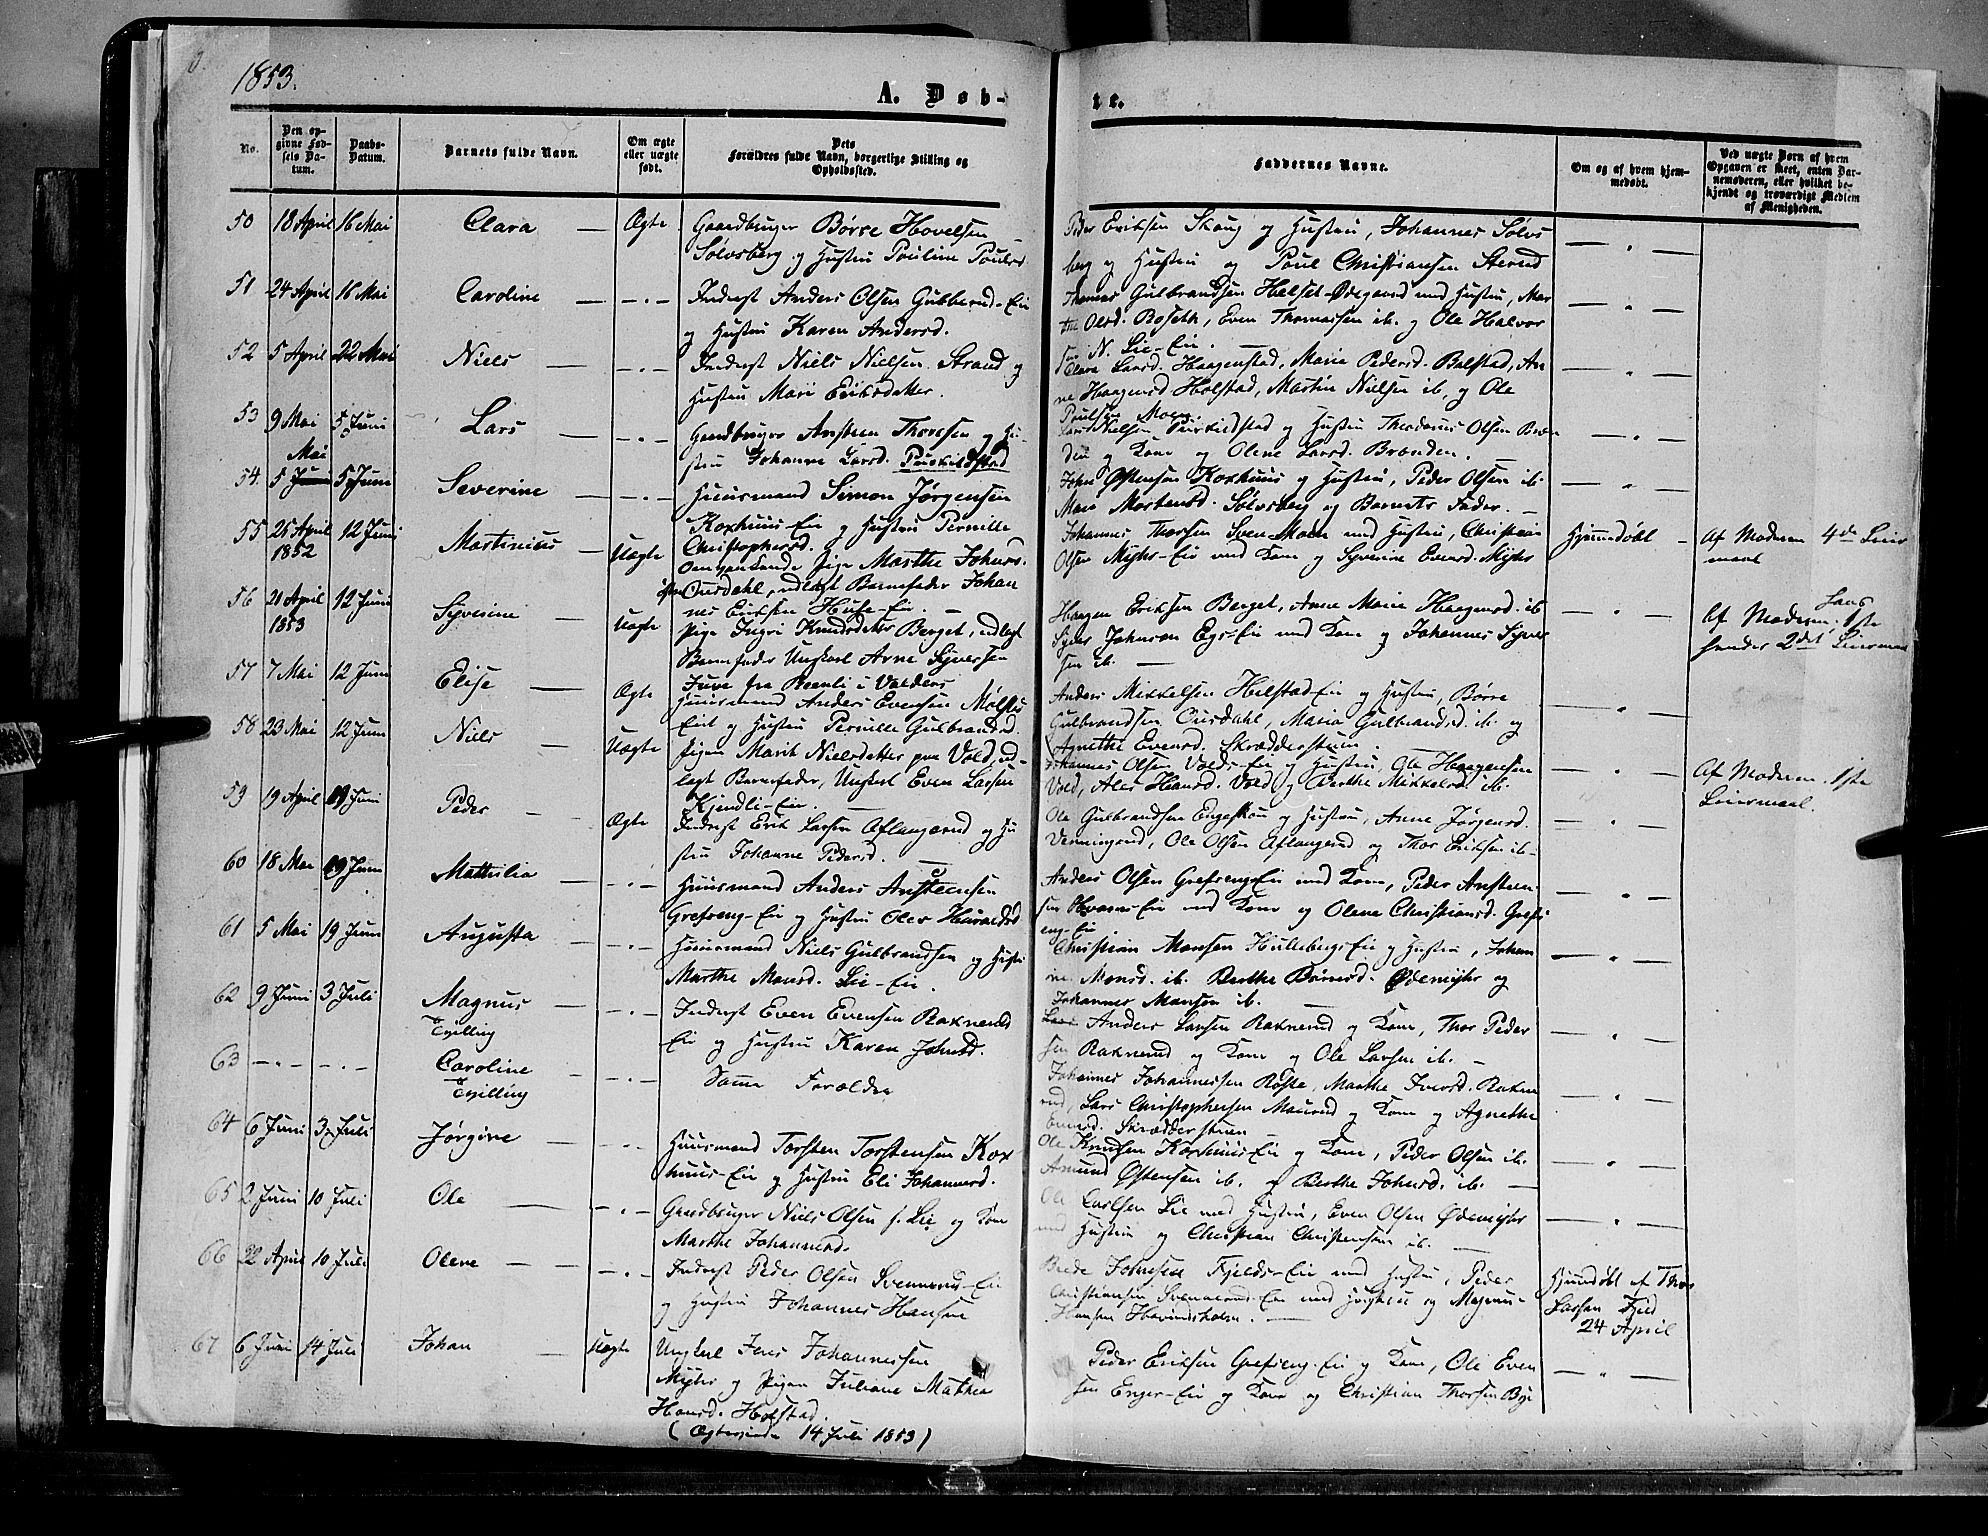 1853.
A. Døb-
te.
No.
Den op-
givne Fød-
sels Da-
tum.
Daabs-
Datum.
Barnets fulde Navn.
Om ægte
eller uægte
født.
Dets
Forældres fulde Navn, borgerlige Stilling og
Opholdssted.
Faddernes Navne.
Om og af hvem hjem-
medøbt.
Ved uægte Børn af hvem
Opgaven er skeet, enten Bar-
nemoderen, eller hvilket be-
kjendt og troværdigt Medlem
af Menigheden.
50 18 April 16 Mai Clara — Ægte Gaardbruger Børre Hovelsen
Sølvsberg og Hustru Pauline Paulsd
Peder Eriksen Skoug og Hustru, Johannes Sølvs
berg og Hustru og Poul Christiansen Sterud
51 24 April 16 Mai Caroline — — " — Inderst Anders Olsen Gubberud-Eie
og Hustru Karen Andersd.
Thomas Gulbrandsen Helset-Ødegaard med Hustru, Mar
the Olsd. Boseth, Even Thomassen ib. og Ole Halvor
sen N. Lie-Eie. —
52 5 April 22 Mai Niels — — " — Inderst Niels Nielsen Strand og
Hustru Mari Eriksdatter.
Clara Larsd. Haagenstad, Marie Pedersd. Bolstad, An
ne Haagensd Holstad, Martin Nielsen ib. og Ole
Poulsen Moen.
53 9 Mai 5 Juni Lars — — " — Gaardbruger Ansteen Thoresen og Hu-
stru Johanne Larsd. Purkildstad
Lars Nielsen Purkildstad og Hustru Theodorus Olsen Bræn
den og Kone og Olene Larsd. Brænden.
Mai
54 5 Juni 5 Juni Severine — — " — Huusmand Simon Jørgensen
Koxhuus-Eie og Hustru Pernille
Christophersd.
John Østensen Koxhuus og Hustru, Peder Olsen ib.
Mari Mortensd. Sølvsberg og Barnets Fader. —
55 25 April
1852 12 Juni Martinius — Uægte Omvankende Pige Marthe Johnsd.
Ousdahl, udlagt Barnefader Johan
nes Eriksen Huse-Eie. —
Johannes Thorsen Svenskoen med Hustru, Christian
Olsen Myhr-Eie med Kone og Syverine Evensd. Myhr
Hjemdøbt — Af Moderen 4de Leier
maal
56 20 April
1853 12 Juni Syverine Uægte Pige Ingri Knudsdatter Berget, udlagt
Barnefader Ungkarl Arne Syversen
Juve fra Reenli i Valders
Haagen Eriksen Berget, Anne Marie Haagensd. ib
Syver Johnsen Egs-Eie med Kone og Johannes Syver
sen ib. —
Af Moderen. Hans 1ste
hendes 2det Leiermaal
57 7 Mai 12 Juni Elise — Ægte Huusmand Anders Evensen Mølstad
Eie og Hustru Pernille Gulbrandsd.
Anders Mikkelsen Helstad-Eie og Hustru, Børre
Gulbrandsen Ousdahl, Maria Gulbrandsd. ib. og
Agnethe Evensd. Skrædderstuen.
58 23 Mai 12 Juni Niels — Uægte Pigen Marit Nielsdatter paa Vold, ud-
lagt Barnefader, Ungkarl Even Larsen
Kjendli-Eie. —
Johannes Olsen Volds-Eie og Hustru, Ole Haagensen
Vold, Alis Hansd. Vold og Berthe Mikkelsd. ib.
Af Moderen. 1ste
Leiermaal.
59 19 April 19 Juni Peder — Ægte Inderst Erik Larsen Aflangerud og Hu
stru Johanne Pedersd. —
Ole Gulbrandsen Engeskou og Hustru, Anne Jørgensd.
Venningsrud, Ole Olsen Aflangerud og Thor Eriksen ib. —
60 18 Mai 19 Juni Mathilia — — " — Huusmand Anders Ansteensen
Grefseng-Eie og Hustru Oler Haraldsd
Anders Olsen Grefseng-Eie med Kone, Peder Ansteen-
sen Hvams-Eie med Kone og Olene Christiansd. Grefs
eng-Eie
61 5 Mai 19 Juni Augusta — — " — Huusmand Niels Gulbrandsen og Hustru
Marthe Monsd. Lie-Eie.
Christian Monsen Hullebergs-Eie og Hustru, Johan
ne Monsd. ib. Berthe Børresd. Ødemyhr og
Johannes Monsen ib. —
62 9 Juni 3 Juli Magnus — — " — Inderst Even Evensen Raknerud
Tvilling Eie og Hustru Karen Johnsd.
Lars Anders Larsen Raknerud og Kone, Thor Peder
sen Raknerud og Kone og Ole Larsen ib. —
63 — " — — " — Caroline — — " — Samme Forældre
Tvilling
Johannes Johannessen Røste, Marthe Iversd. Rakne
rud, Lars Christophersen Maurud og Kone og Agnethe
Evensd. Skrædderstuen —
64 6 Juni 3 Juli Jørgine — — " — Huusmand Torsten Torstensen Kox
huus-Eie og Hustru Eli Johannesd.
Ole Knudsen Koxhuus-Eie og Kone, Peder Olsen ib.
Amund Østensen ib. og Berthe Johnsd. ib. —
65 2 Juni 10 Juli Ole — — " — Gaardbruger Niels Olsen s. Lie og Kone
Marthe Johannesd.
Ole Carlsen Lie med Hustru, Even Olsen Ødemyhr
med Hustru og Christian Christensen ib. —
66 22 April 10 Juli Olene — — " — Inderst Peder Olsen Svennerud-Eie
og Hustru Johannes Hansen
Brede Johnsen Fjelds-Eie med Hustru, Peder
Christiansen Svennerud-Eie med Hustru og Magnus
Hansen Hovindsholm. —
Hjemdøbt af Thor
Larsen Fjeld
24 April
67 6 Juni 14 Juli Johan — Uægte Ungkarl Jens Johannessen
Myhr og Pigen Juliane Mathea
Hansd. Holstad.
(Ægteviede 14 Juli 1853)
Peder Eriksen Grefseng-Eie og Kone, Ole Even
sen Enger-Eie og Kone og Christian Thorsen Bye